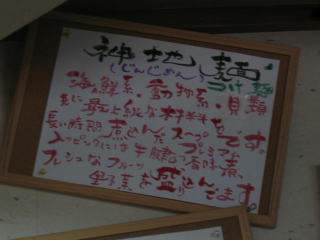 神地麺
（じんじめん）つけ麺
海鮮系・動物系・貝類
共に最上級な材料を
長い時間煮込んだスープです
トッピングには牛 の香味煮、
フレッシュなフルーツ
野菜を盛り込んでます。